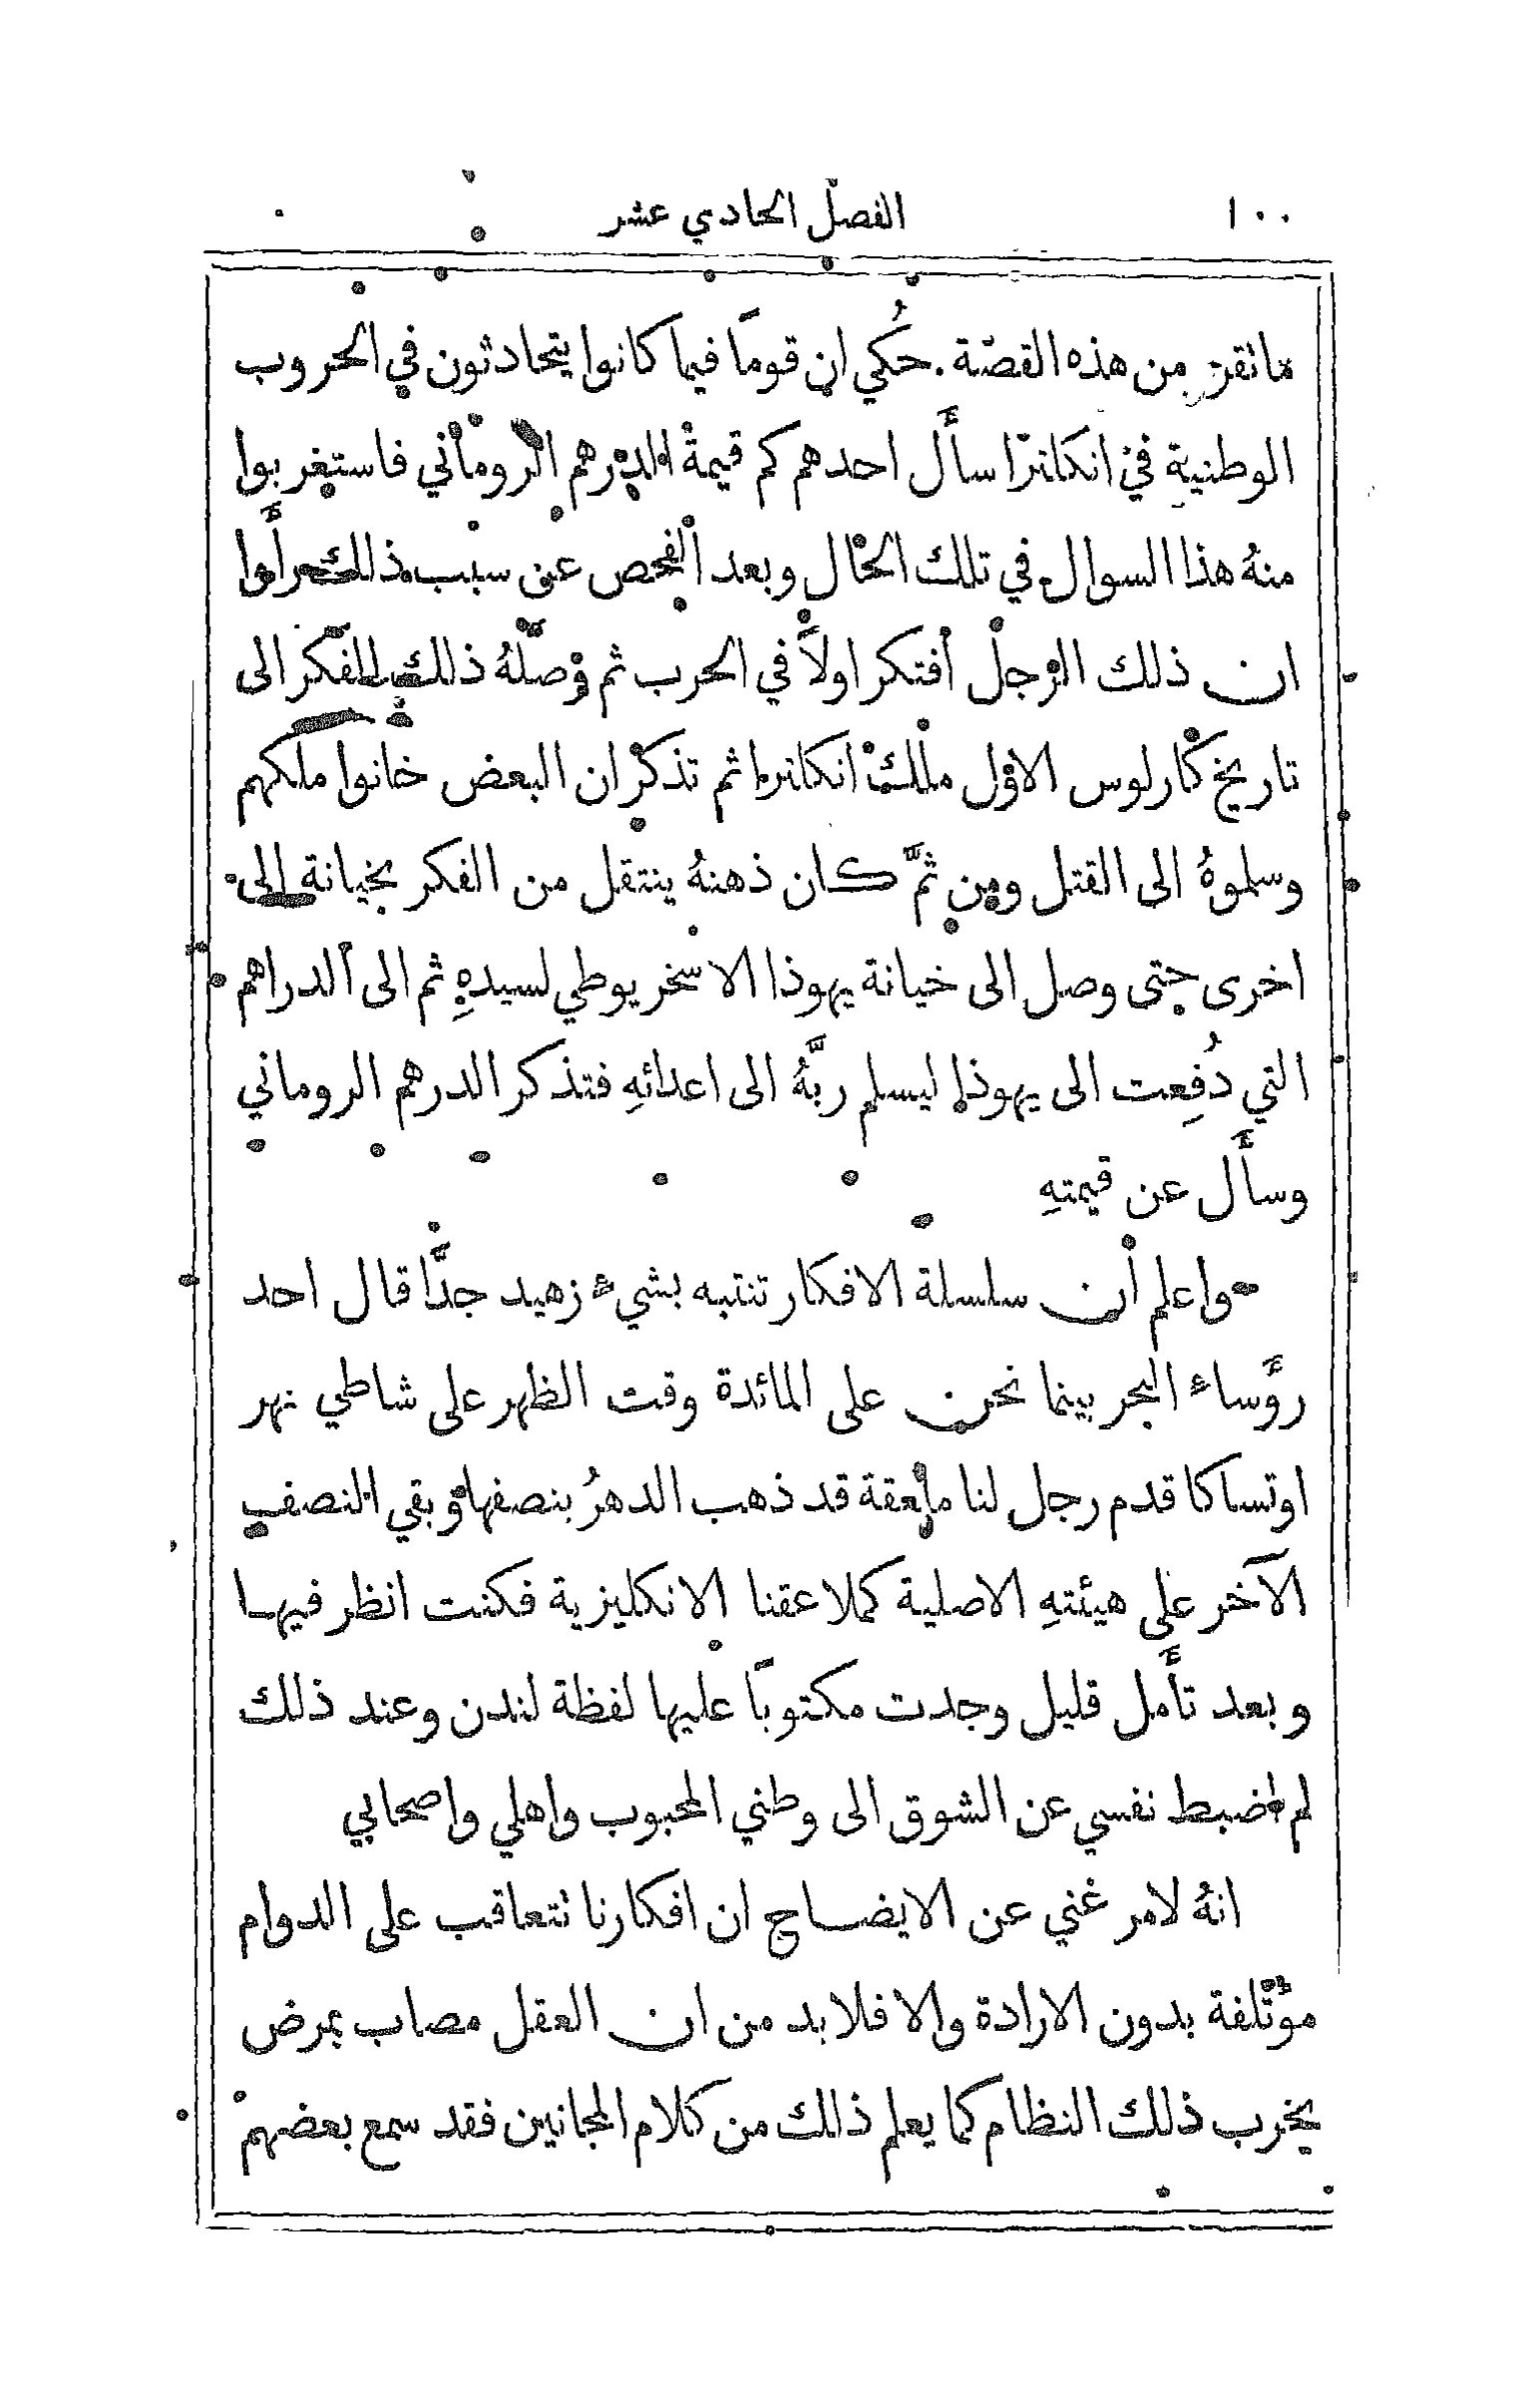 ١٠٠ الفصل الحادي عشر
ما تقرر من هذه القصّة. حُكي ان قومًا فيما كانوا يتحادثون في الحروب
الوطنية في انكلترا سأَل احدهم كم قيمة الدرهم الروماني فاستغربوا
منهُ هذا السوال في تلك الحال وبعد الفحص عن سبب ذلك رأَوا
ان ذلك الرجل افتكر اولاً في الحرب ثم وصّلهُ ذلك الفكر الى
تاريخ كارلوس الاول ملك انكلترا ثم تذكر ان البعض خانوا ملكهم
وسلموهُ الى القتل ومن ثمَّ كان ذهنهُ ينتقل من الفكر بخيانة الى
اخرى حتى وصل الى خيانة يهوذا الاسخريوطي لسيدهِ ثم الى الدراهم
التي دُفِعت الى يهوذا ليسلم ربَّهُ الى اعدائهِ فتذكر الدرهم الروماني
وسأَل عن قيمتهِ
واعلم ان سلسلة الافكار تنتبه بشيء زهيد جدًّا قال احد
رؤَساء البحر بينما نحن على المائدة وقت الظهر على شاطي نهر
اوتساكا قدم رجل لنا ملعقة قد ذهب الدهرُ بنصفها وبقي النصف
الآخر على هيئتهِ الاصلية كملاعقنا الانكليزية فكنت انظر فيها
وبعد تأَمل قليل وجدت مكتوبًا عليها لفظة لندن وعند ذلك
لم اضبط نفسي عن الشوق الى وطني المحبوب واهلي واصحابي
انهُ لامر غني عن الايضاح ان افكارنا تتعاقب على الدوام
مؤتلفة بدون الارادة والا فلا بد من ان العقل مصاب بمرض
يخرب ذلك النظام كما يعلم ذلك من كلام المجانين فقد سمع بعضهم